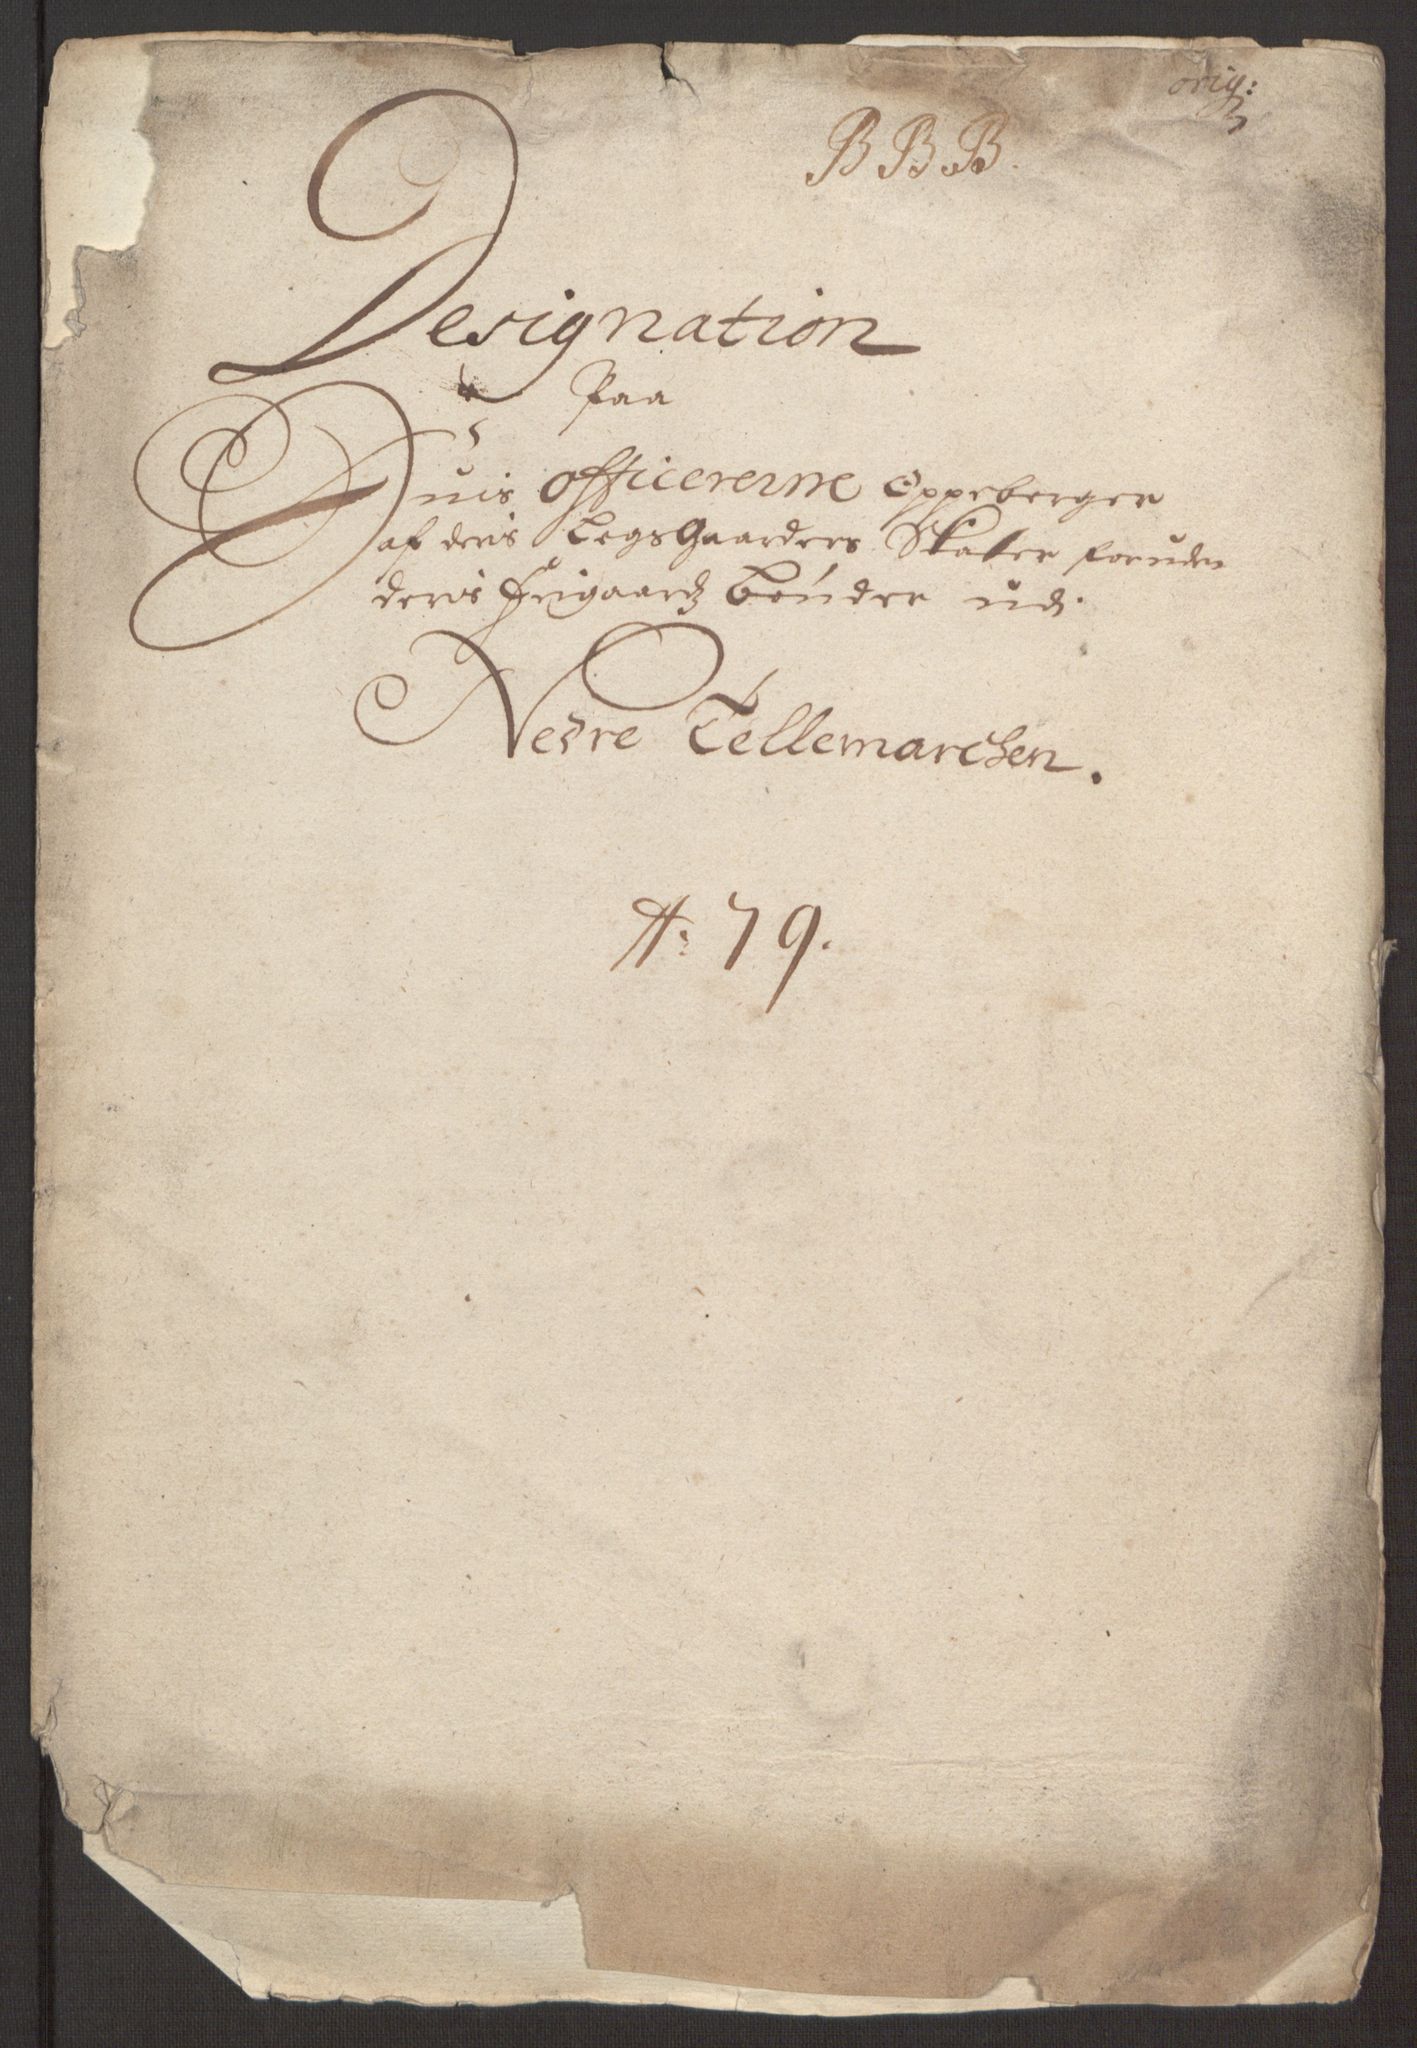 orig:
B B B.
Designation
Paa
Huis officererne Oppeberger
af deris LegsGaarders Skatter foruden
deris frigaardz bønder udj
Nedre Tellemarchen.
A: 79.